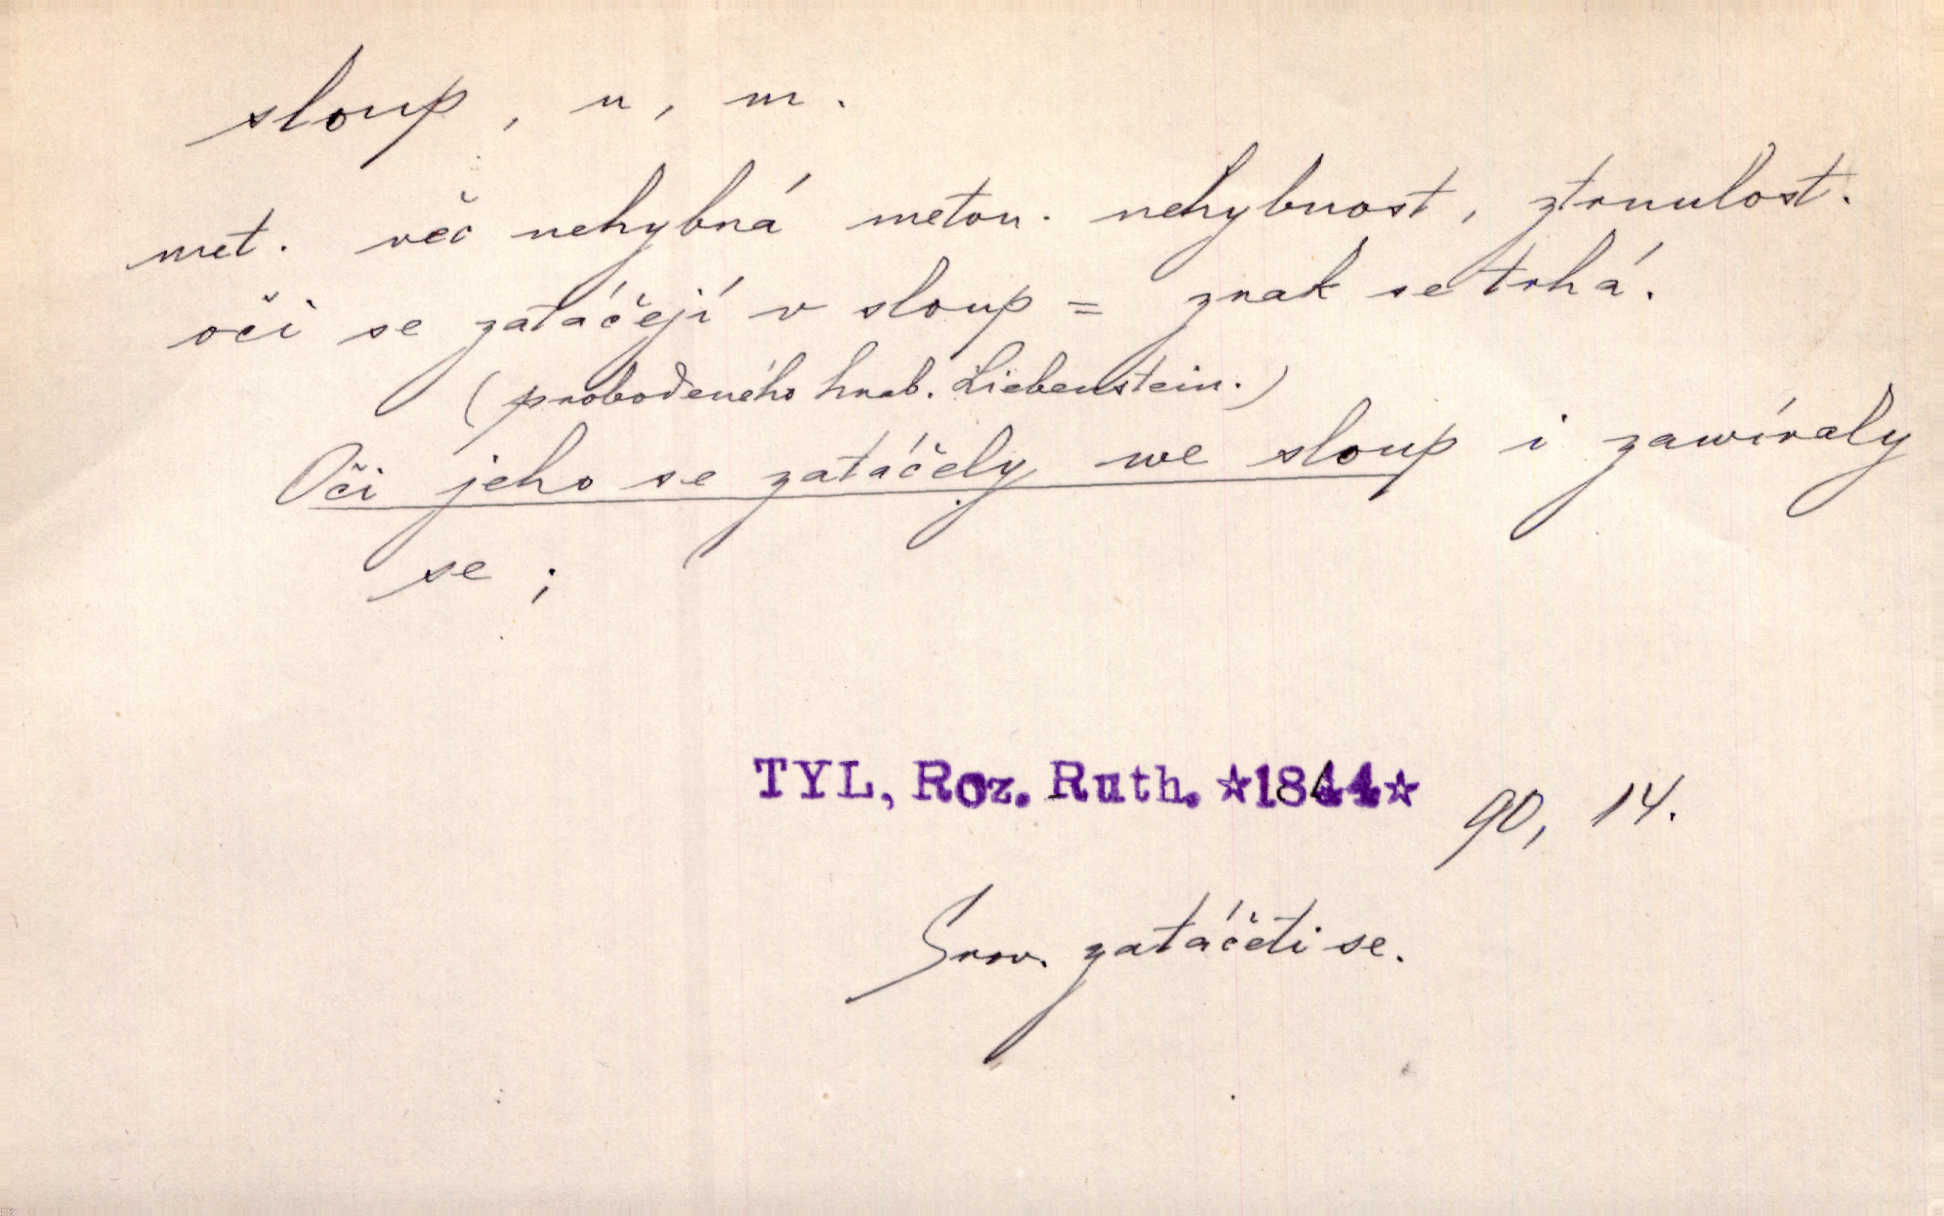 sloup, u, m.
met. věc nehybná meton. nehybnost, ztrnulost.
oči se zatáčejí v sloup = zrak se trhá.
(probodeného hrab. Liebenstein.)
Oči jeho se zatáčely we sloup i zawíraly
se ;
TYL, Roz. Ruth. ☆1844☆ 90, 14.
Srov. zatáčeti se.